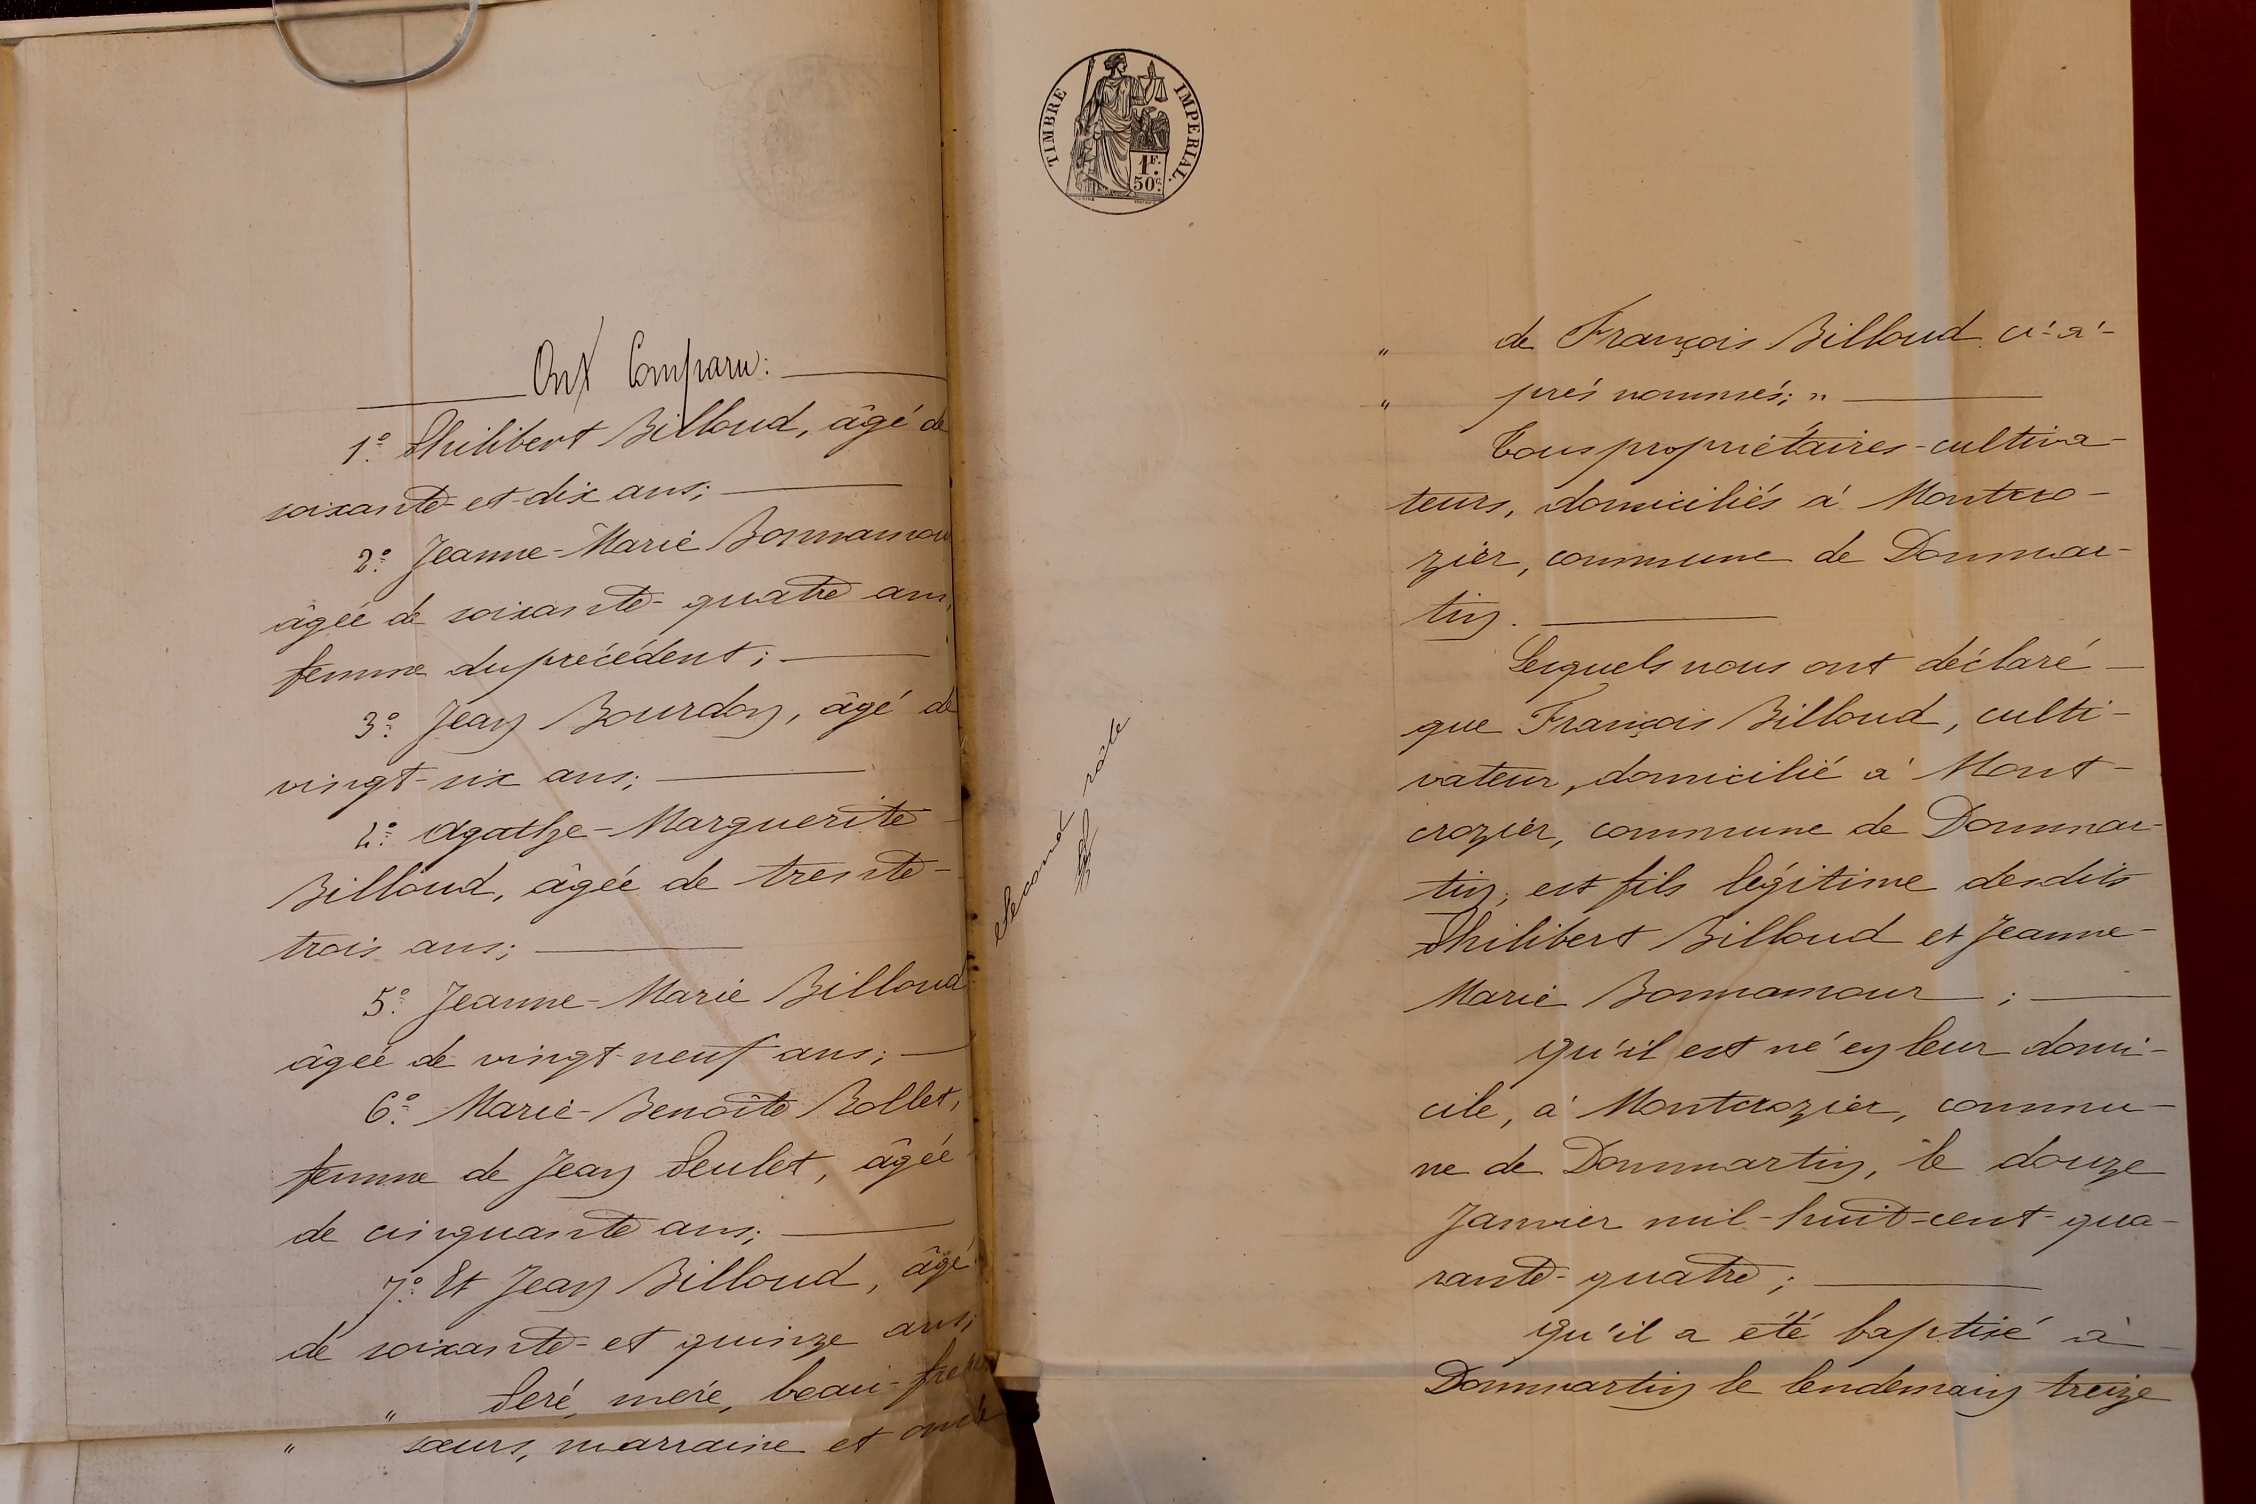 Ont Comparu:
1º. Philibert Billoud, âgé de
soixante-et-dix ans;
2º. Jeanne-Marie Bonnamour
âgée de soixante-quatre ans,
femme du précédent;
3º. Jean Bourdon, âgé de
vingt-six ans;
4º. Agathe-Marguerite
Billoud, âgée de trente-
trois ans;
5º. Jeanne-Marie Billoud
âgée de vingt-neuf ans;
6º. Marie-Benoîte Rollet,
femme de Jean Peulet, âgée
de cinquante ans;
7º. Et Jean Billoud, âgé
de soixante-et quinze ans;
" Père, mère, beau-frère
" sœurs, marraine et oncle
TIMBRE IMPERIAL.
1F.
50c.
" de François Billoud ci-a-
" près nommés; "
Tous propriétaires-cultiva-
teurs, domiciliés à Montcro-
zier, commune de Dommar-
tin.
Lesquels nous ont déclaré
que François Billoud, culti-
vateur, domicilié à Mont-
crozier, commune de Dommar-
tin, est fils légitime desdits
Philibert Billoud et Jeanne-
Marie Bonnamour;
qu'il est né en leur domi-
cile, à Montcrozier, commu-
ne de Dommartin, le douze
Janvier mil-huit-cent-qua-
rante-quatre;
qu'il a été baptisé à
Dommartin le lendemain treize
Second rôle